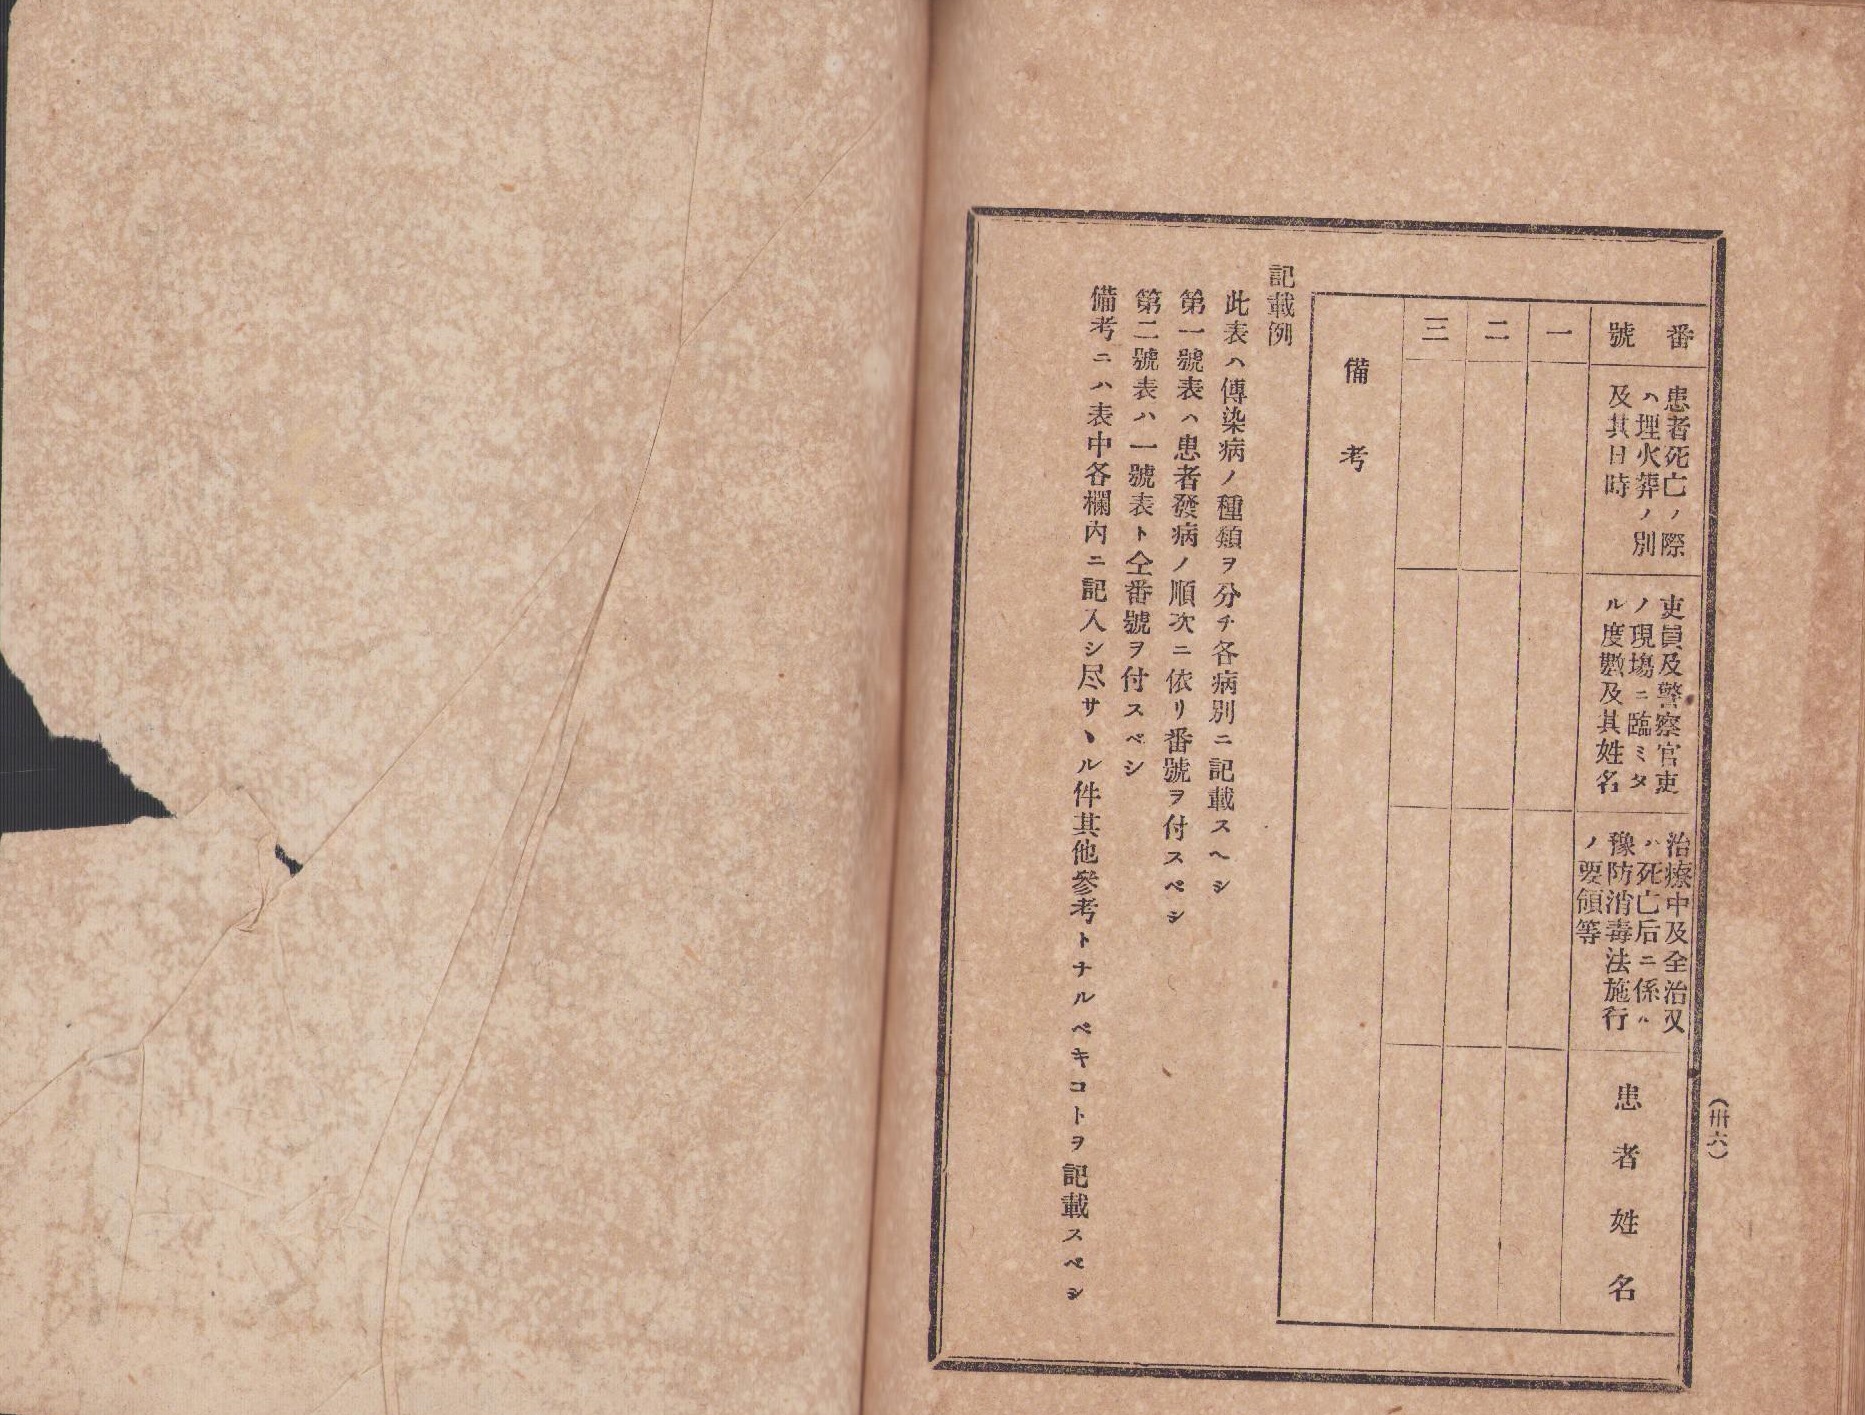 番號
患者死亡ノ際
ハ埋火葬ノ別
及其日時
吏員及警察官吏
ノ現塲ニ臨ミタ
ル度數及其姓名
治療中及全治又
ハ死亡后ニ係ル
豫防消毒法施行
ノ要領等
患者姓名
一
二
三
備考
記載例
此表ハ傳染病ノ種類ヲ分チ各病別ニ記載スヘシ
第一號表ハ患者發病ノ順次ニ依リ番號ヲ付スベシ
第二號表ハ一號表ト仝番號ヲ付スベシ
備考ニハ表中各欄内ニ記入シ尽サヽル件其他參考トナルベキコトヲ記載スベシ
(卅六)